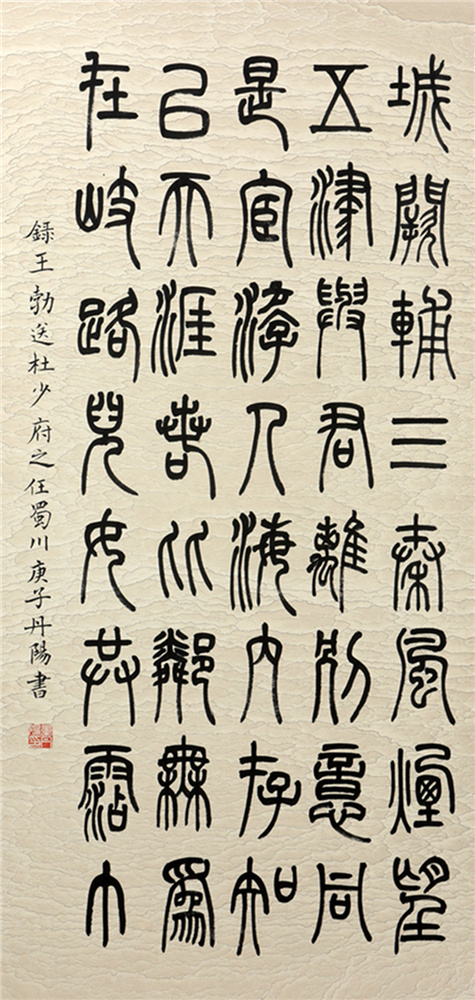 城闕輔三秦風煙望
五津與君離別意同
是宦游人海内存知
己天涯若比鄰無為
在岐路兒女共霑巾
録王勃送杜少府之任蜀川庚子丹陽書